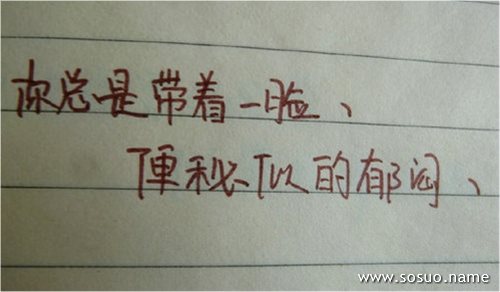 你总是带着一脸、
便秘似的郁闷、
www.sosuo.name